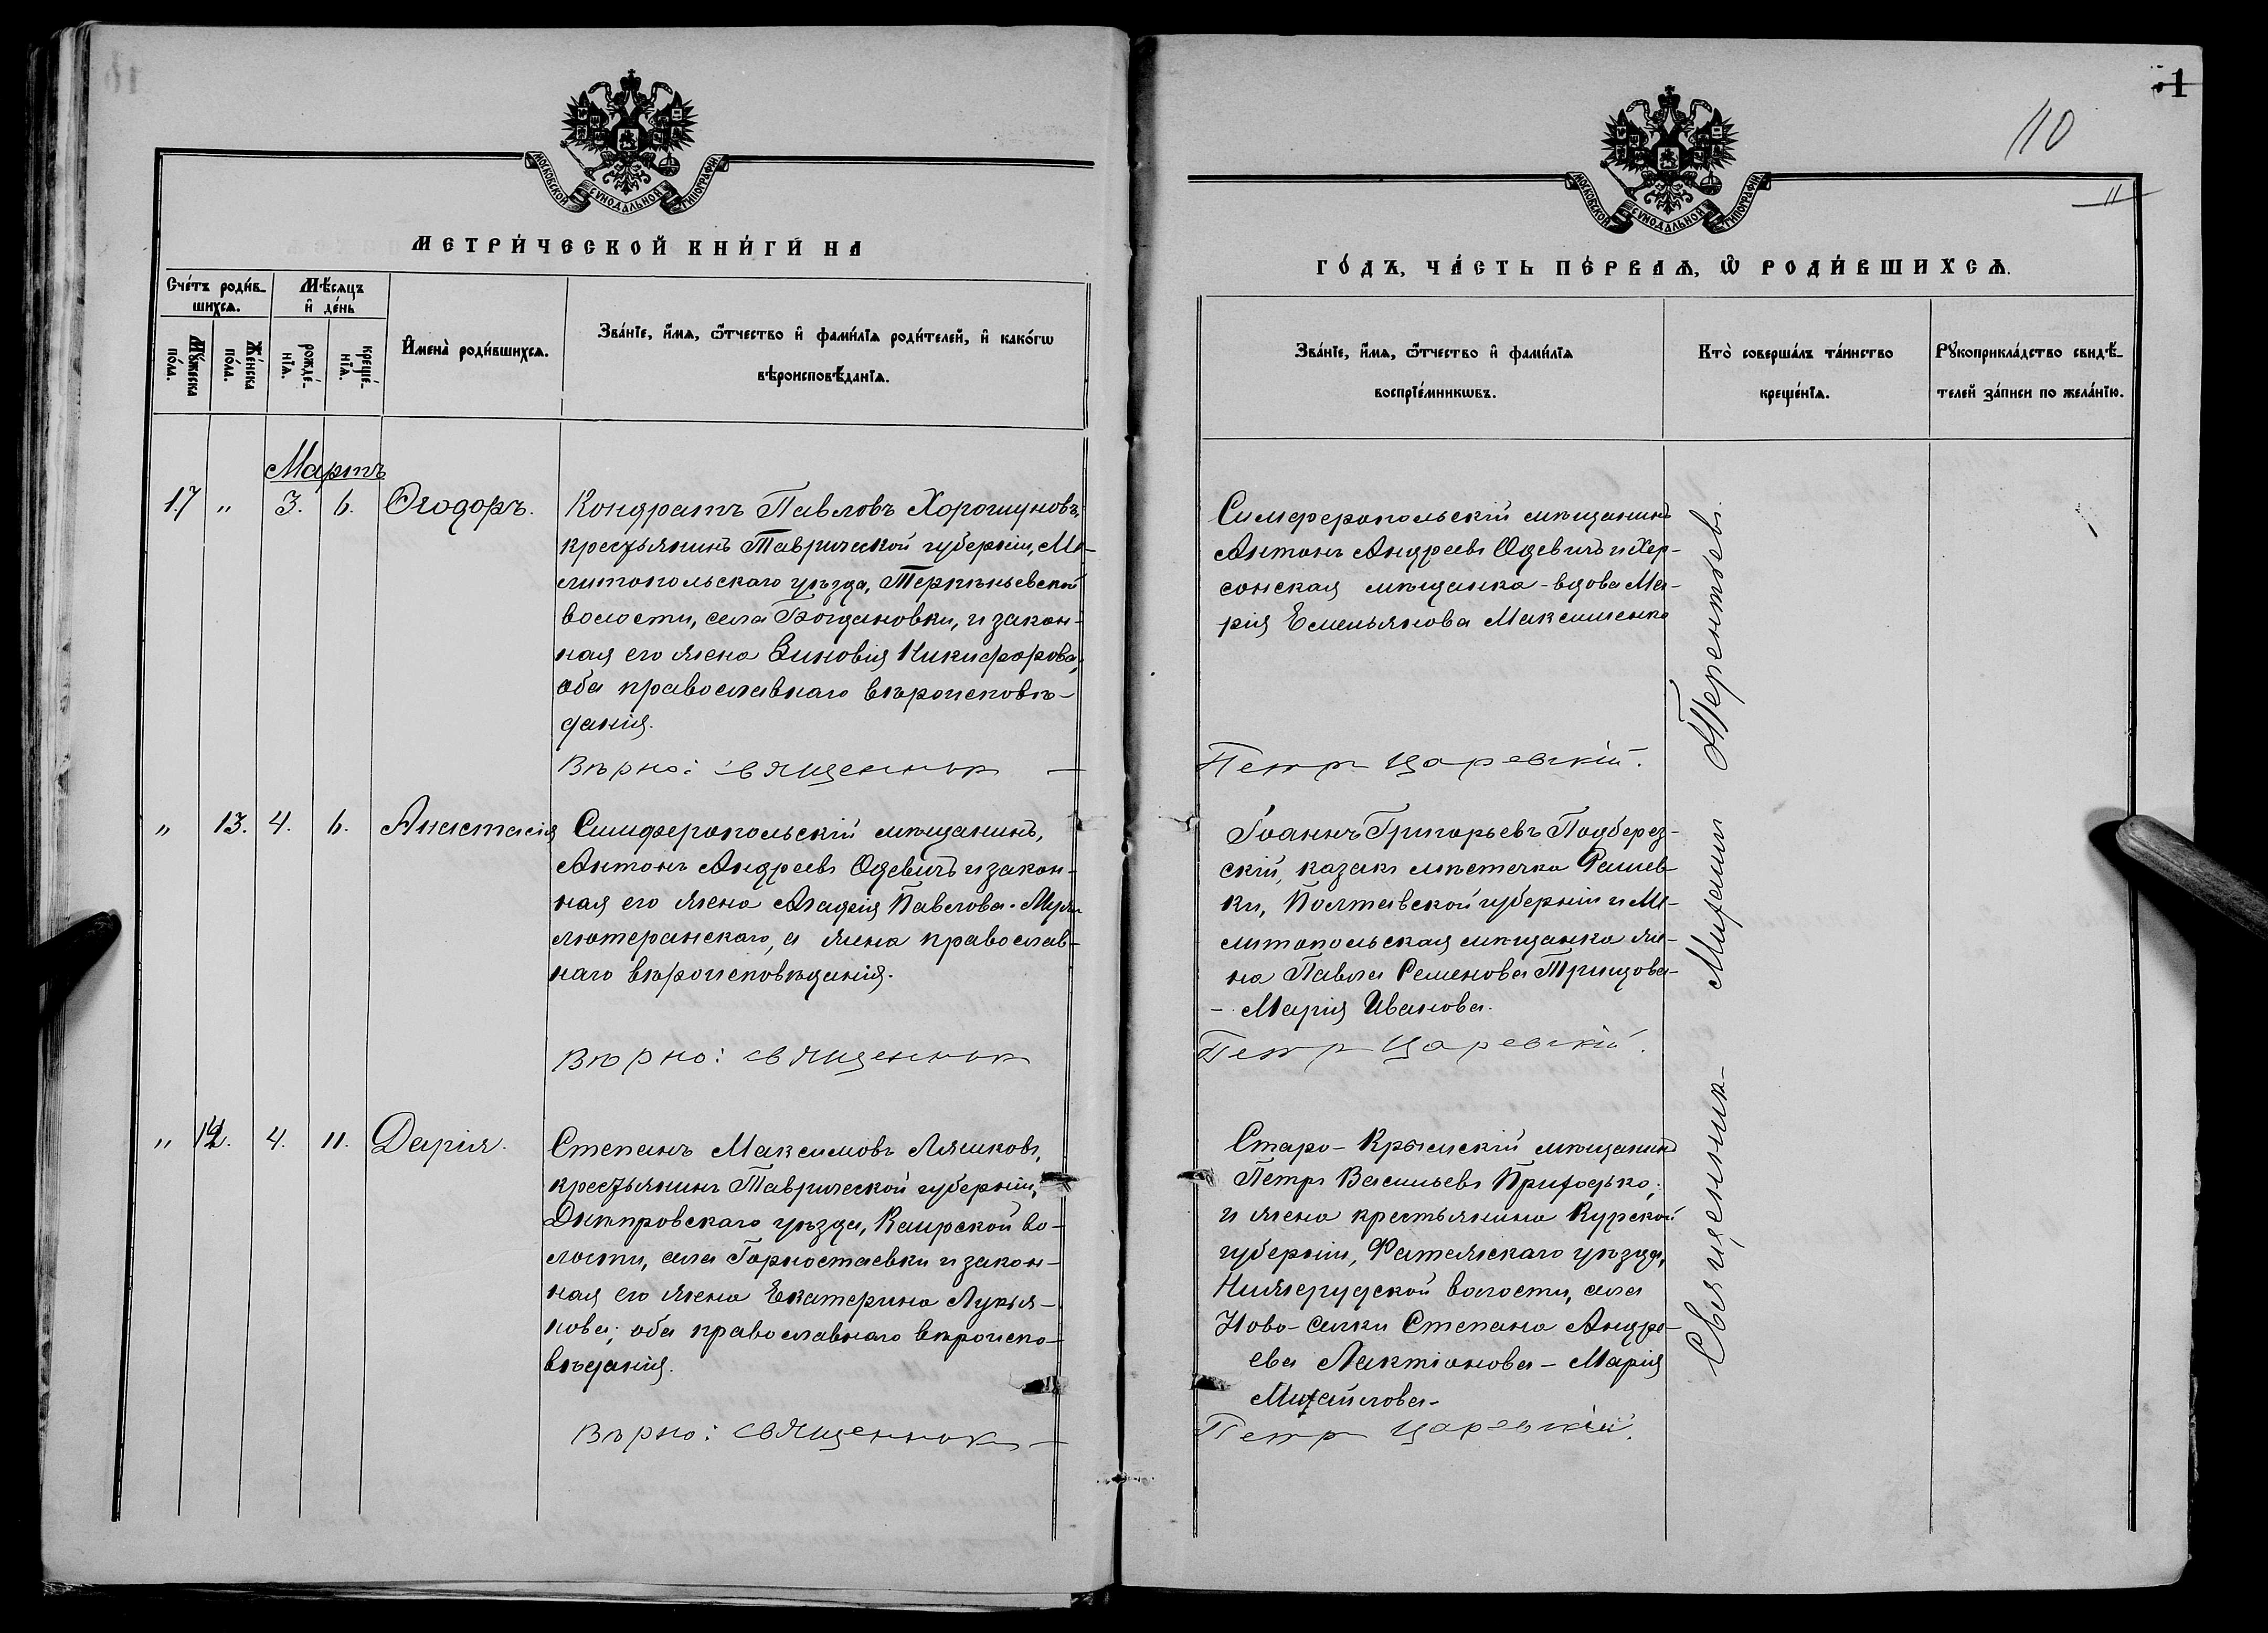 МОСКОВСКОЙ СѴНОДАЛЬНОЙ ТИПОГРАФІИ
МЕТРИ́ЧЕСКОЙ КНИ́ГИ НА
Сче́тъ роди́в-
шихсѧ.
Мѣ́сѧцъ
и҆ де́нь
Мꙋ́жеска
по́ла.
Же́нска
по́ла.
рожде́-
нїѧ.
креще́-
нїѧ.
И҆мена̀ роди́вшихсѧ.
Зва́нїе, и҆́мѧ, ѻ҆́тчество и҆ фами́лїѧ роди́телей, и҆ како́гѡ
вѣроисповѣ́данїѧ.
Мартъ
17 " 3. 6. Ѳеодоръ.
Кондратъ Павловъ Хорошуновъ,
крестьянинъ Таврической губерніи, Ме-
литопольскаго уѣзда, Терпѣньевской
волости, села Богдановки, и закон-
ная его жена Зиновія Никифорова,
оба православнаго вѣроисповѣ-
данія.
Вѣрно: священникъ —
" 13. 4. 6. Анастасія
Симферопольскій мѣщанинъ,
Антонъ Андреевъ Одевичъ и закон-
ная его жена Агафія Павлова. Мужъ
лютеранскаго, а жена православ-
наго вѣроисповѣданія.
Вѣрно: священникъ
" 14. 4. 11. Дарія.
Степанъ Максимовъ Ляшковъ,
крестьянинъ Таврической губерніи,
Днѣпровскаго уѣзда, Каирской во-
лости, села Горностаевки и закон-
ная его жена Екатерина Лукья-
нова; оба православнаго вѣроиспо-
вѣданія.
Вѣрно: священникъ —
1
110
11
МОСКОВСКОЙ СѴНОДАЛЬНОЙ ТИПОГРАФІИ
ГО́ДЪ, ЧА́СТЬ ПЕ́РВАѦ, Ѡ҆ РОДИ́ВШИХСѦ.
Зва́нїе, и҆́мѧ, ѻ҆́тчество и҆ фами́лїѧ
воспрїе́мникѡвъ.
Кто̀ соверша́лъ та́инство
креще́нїѧ.
Рꙋкоприкла́дство свидѣ́-
телей за́писи по жела́нїю.
Симферопольскій мѣщанинъ
Антонъ Андреевъ Одевичъ и Хер-
сонская мѣщанка - вдова Ма-
рія Емельянова Максименко
Петръ Царевскій.
Іоаннъ Григорьевъ Подберез-
скій, казакъ мѣстечка Рашев-
ки, Полтавской губерніи и Ме-
литопольская мѣщанка же-
на Павла Семенова Трицова-
- Марія Иванова.
Петръ Царевскій.
Старо-Крымскій мѣщанинъ
Петръ Васильевъ Приходько,
и жена крестьянина Курской
губерніи, Фатежскаго уѣзда,
Нижерудской волости, села
Ново-Силки Степана Андре-
ева Лактіонова - Марія
Михайлова.
Петръ Царевскій.
Священникъ Михаилъ Терентьевъ